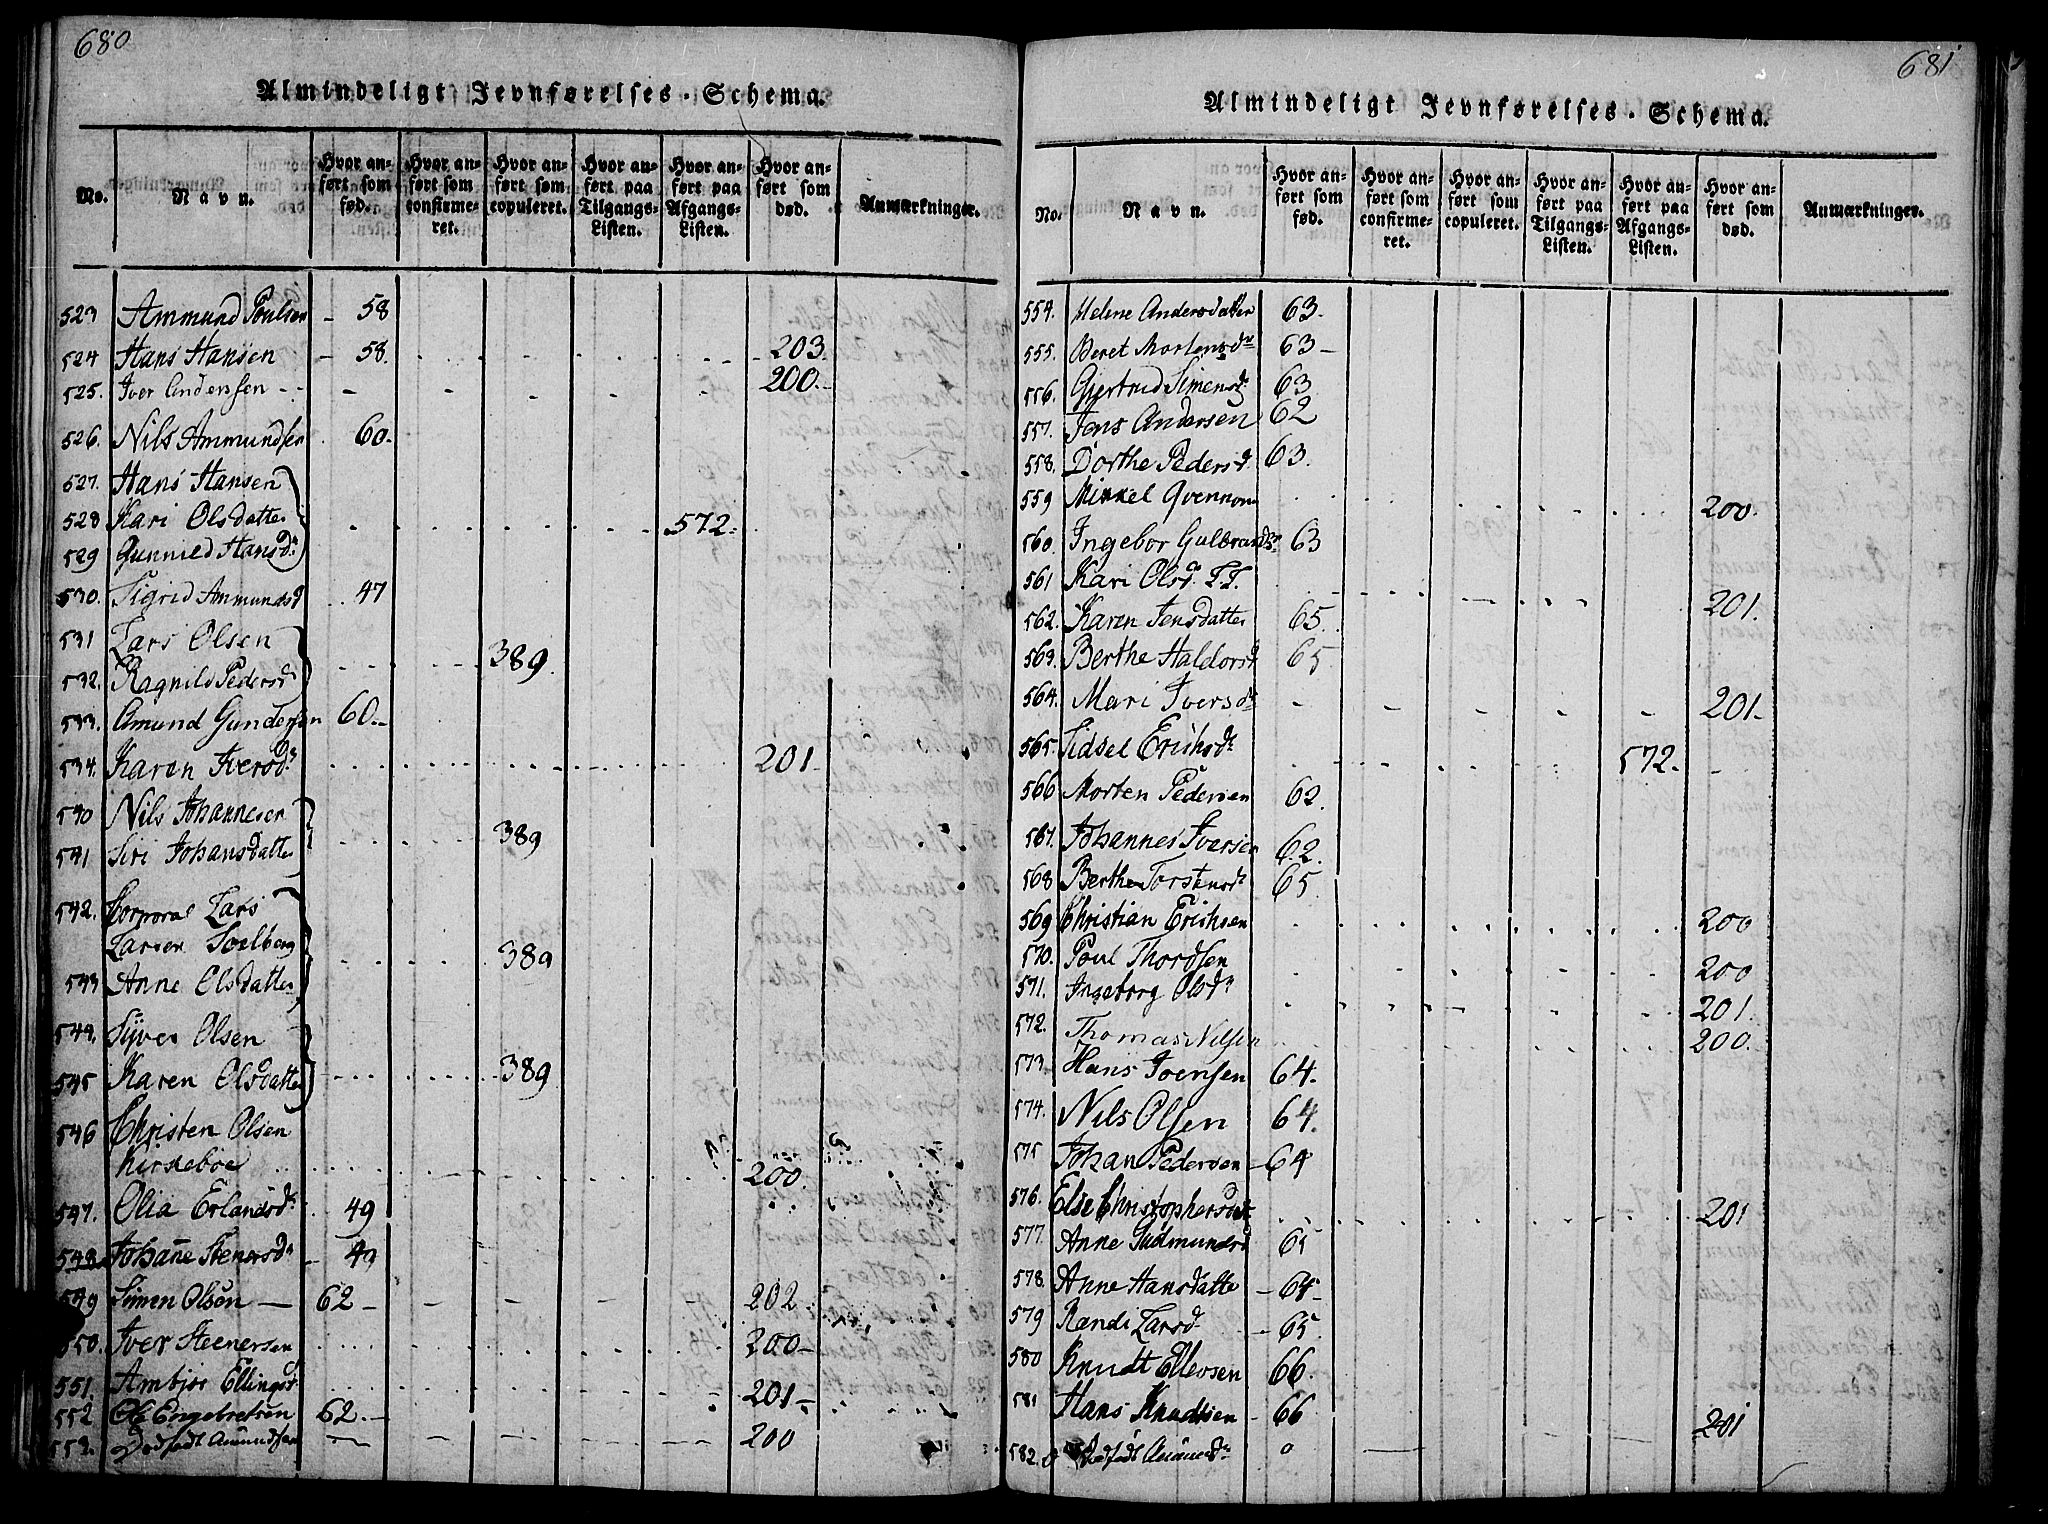 680
Almindeligt Jevnførelses-Schema.
No. Navn. Hvor anført som fød. Hvor anført som confirmeret. Hvor anført som copuleret. Hvor anført paa Tilgangs-Listen. Hvor anført paa Afgangs-Listen. Hvor anført som død. Anmærkninger.
523 Ammund Poulsen - 58
524 Hans Hansen - 58. 203.
525. Iver Anderssen 200.
526. Nils Ammundsen 60.
527. Hans Hansen
528 Kari Olsdatter 572.
529 Gunnild Hansdr
530. Sigrid Ammundsd 47
531 Lars Olsen
532. Ragnild Pedersd 389.
533. Amund Gundersen 60.
534. Karen Iversdr 201
540 Nils Johannesen
541 Siri Johansdatter 389
542. Corporal Lars
Larsen Soelberg 389
543 Anne Olsdatter
544. Syver Olsen
545 Karen Olsdatter 389
546 Christen Olsen
Kirkeboe 200.
547. Olia Erlandsdr 49
548 Johanne Stenersdr - 49
549 Simen Olsen - 62 - 202
550. Iver Steenersen 200-
551. Ambjør Ellingsd 201-
552 Ole Engebretsen 62. -
553. Dødfødt Amundsen 200
681
Almindeligt Jevnførelses-Schema.
No. Navn. Hvor anført som fød. Hvor anført som confirmeret. Hvor anført som copuleret. Hvor anført paa Tilgangs-Listen. Hvor anført paa Afgangs-Listen. Hvor anført som død. Anmærkninger.
554. Helene Andersdatter 63.
555. Beret Mortensdr 63-
556. Gjertrud Simensd. 63.
557. Jens Andersen 62
558. Dorthe Pedersd. 63.
559 Mikkel Qvennom 200.
560. Ingebor Gulbrandsdr 63
561 Kari Olsd. T.T. 201.
562. Karen Jensdatter 65.
563. Berthe Haldorsd 65.
564. Mari Iversdr 201-
565. Sidsel Erichsdr 572-
566 Morten Pedersen 62.
567. Johannes Iversen 62.
568 Berthe Torstensdr 65.
569 Christian Erichsen 200
570. Poul Thordsen 200
571. Ingeborg Olsdr 201.
572. Thomas Nilsen 200.
573 Hans Joensen 64.
574. Nils Olsen 64.
575 Johan Pedersen - 64
576. Else Christophersdatr 201
577. Anne Gudmundsd 65
578. Anne Hansdatte - 64-
579 Randi Larsd. - 65.
580 Knudt Ellevsen 66.
581 Hans Knudtsen - 66
201
582. Dødfødt